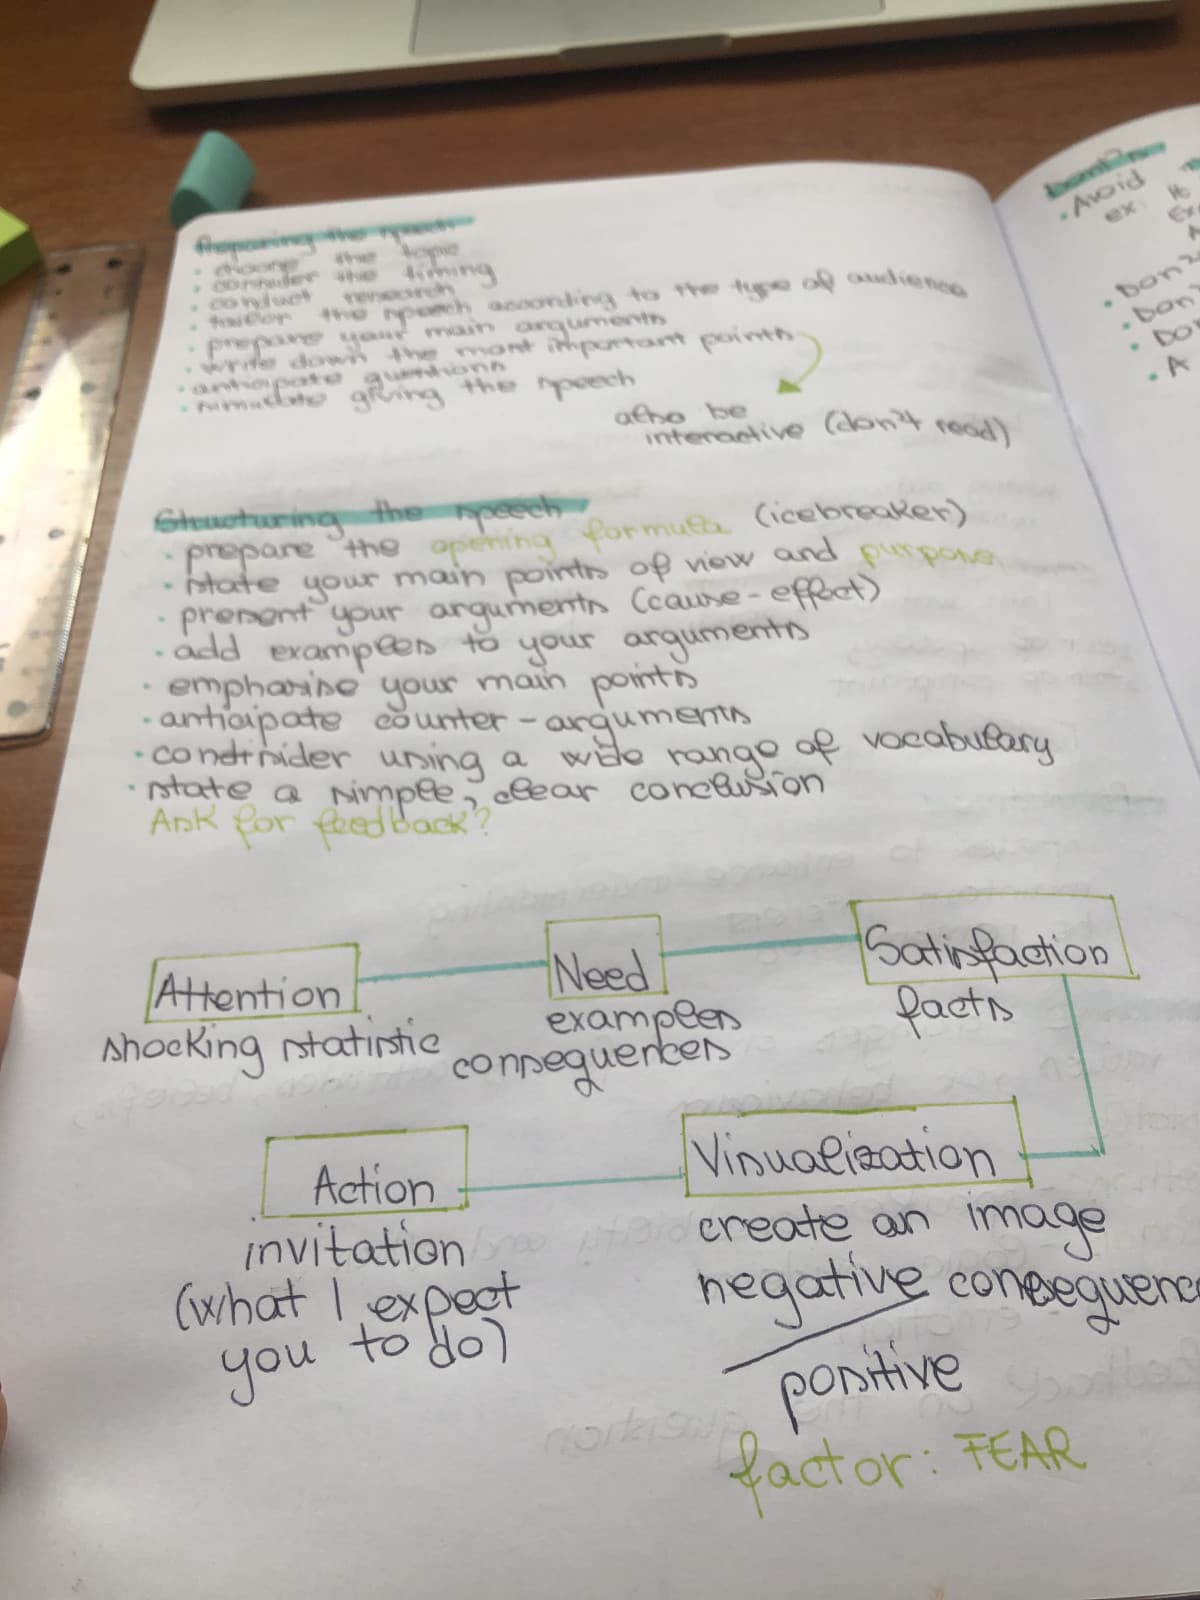 Preparing the speech
• choose the topic
• consider the timing
• conduct research
• tailor the speech according to the type of audience
• prepare your main arguments
• write down the most important points
• anticipate questions
• simulate giving the speech
also be
interactive (don't read)
Structuring the speech
• prepare the opening formula (icebreaker)
• state your main points of view and purpose
• present your arguments (cause-effect)
• add examples to your arguments
• emphasise your main points
• anticipate counter-arguments
• consider using a wide range of vocabulary
• state a simple, clear conclusion
Ask for feedback?
Attention
shocking statistic
Need
examples
consequences
Satisfaction
facts
Visualization
create an image
negative consequenc
positive
factor: FEAR
Action
invitation
(what I expect
you to do)
Dont's
• Avoid
ex:
• Don't
• Don'
• Do
• A